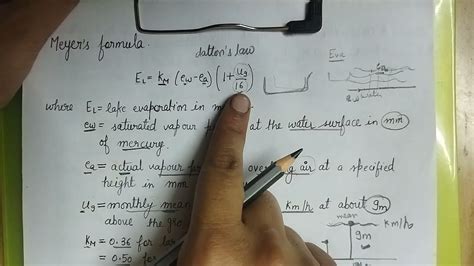 Meyer's formula.
dalton's law
Eva
E_L = K_M (e_w - e_a) (1 + u_9/16)
water
where E_L = lake evaporation in m
e_w = saturated vapour at the water surface in mm
of mercury.
e_a = actual vapour over air at a specified
height in mm
u_9 = monthly mean km/h at about 9m
above the
mean km/h
9m
K_M = 0.36 for
= 0.50 for